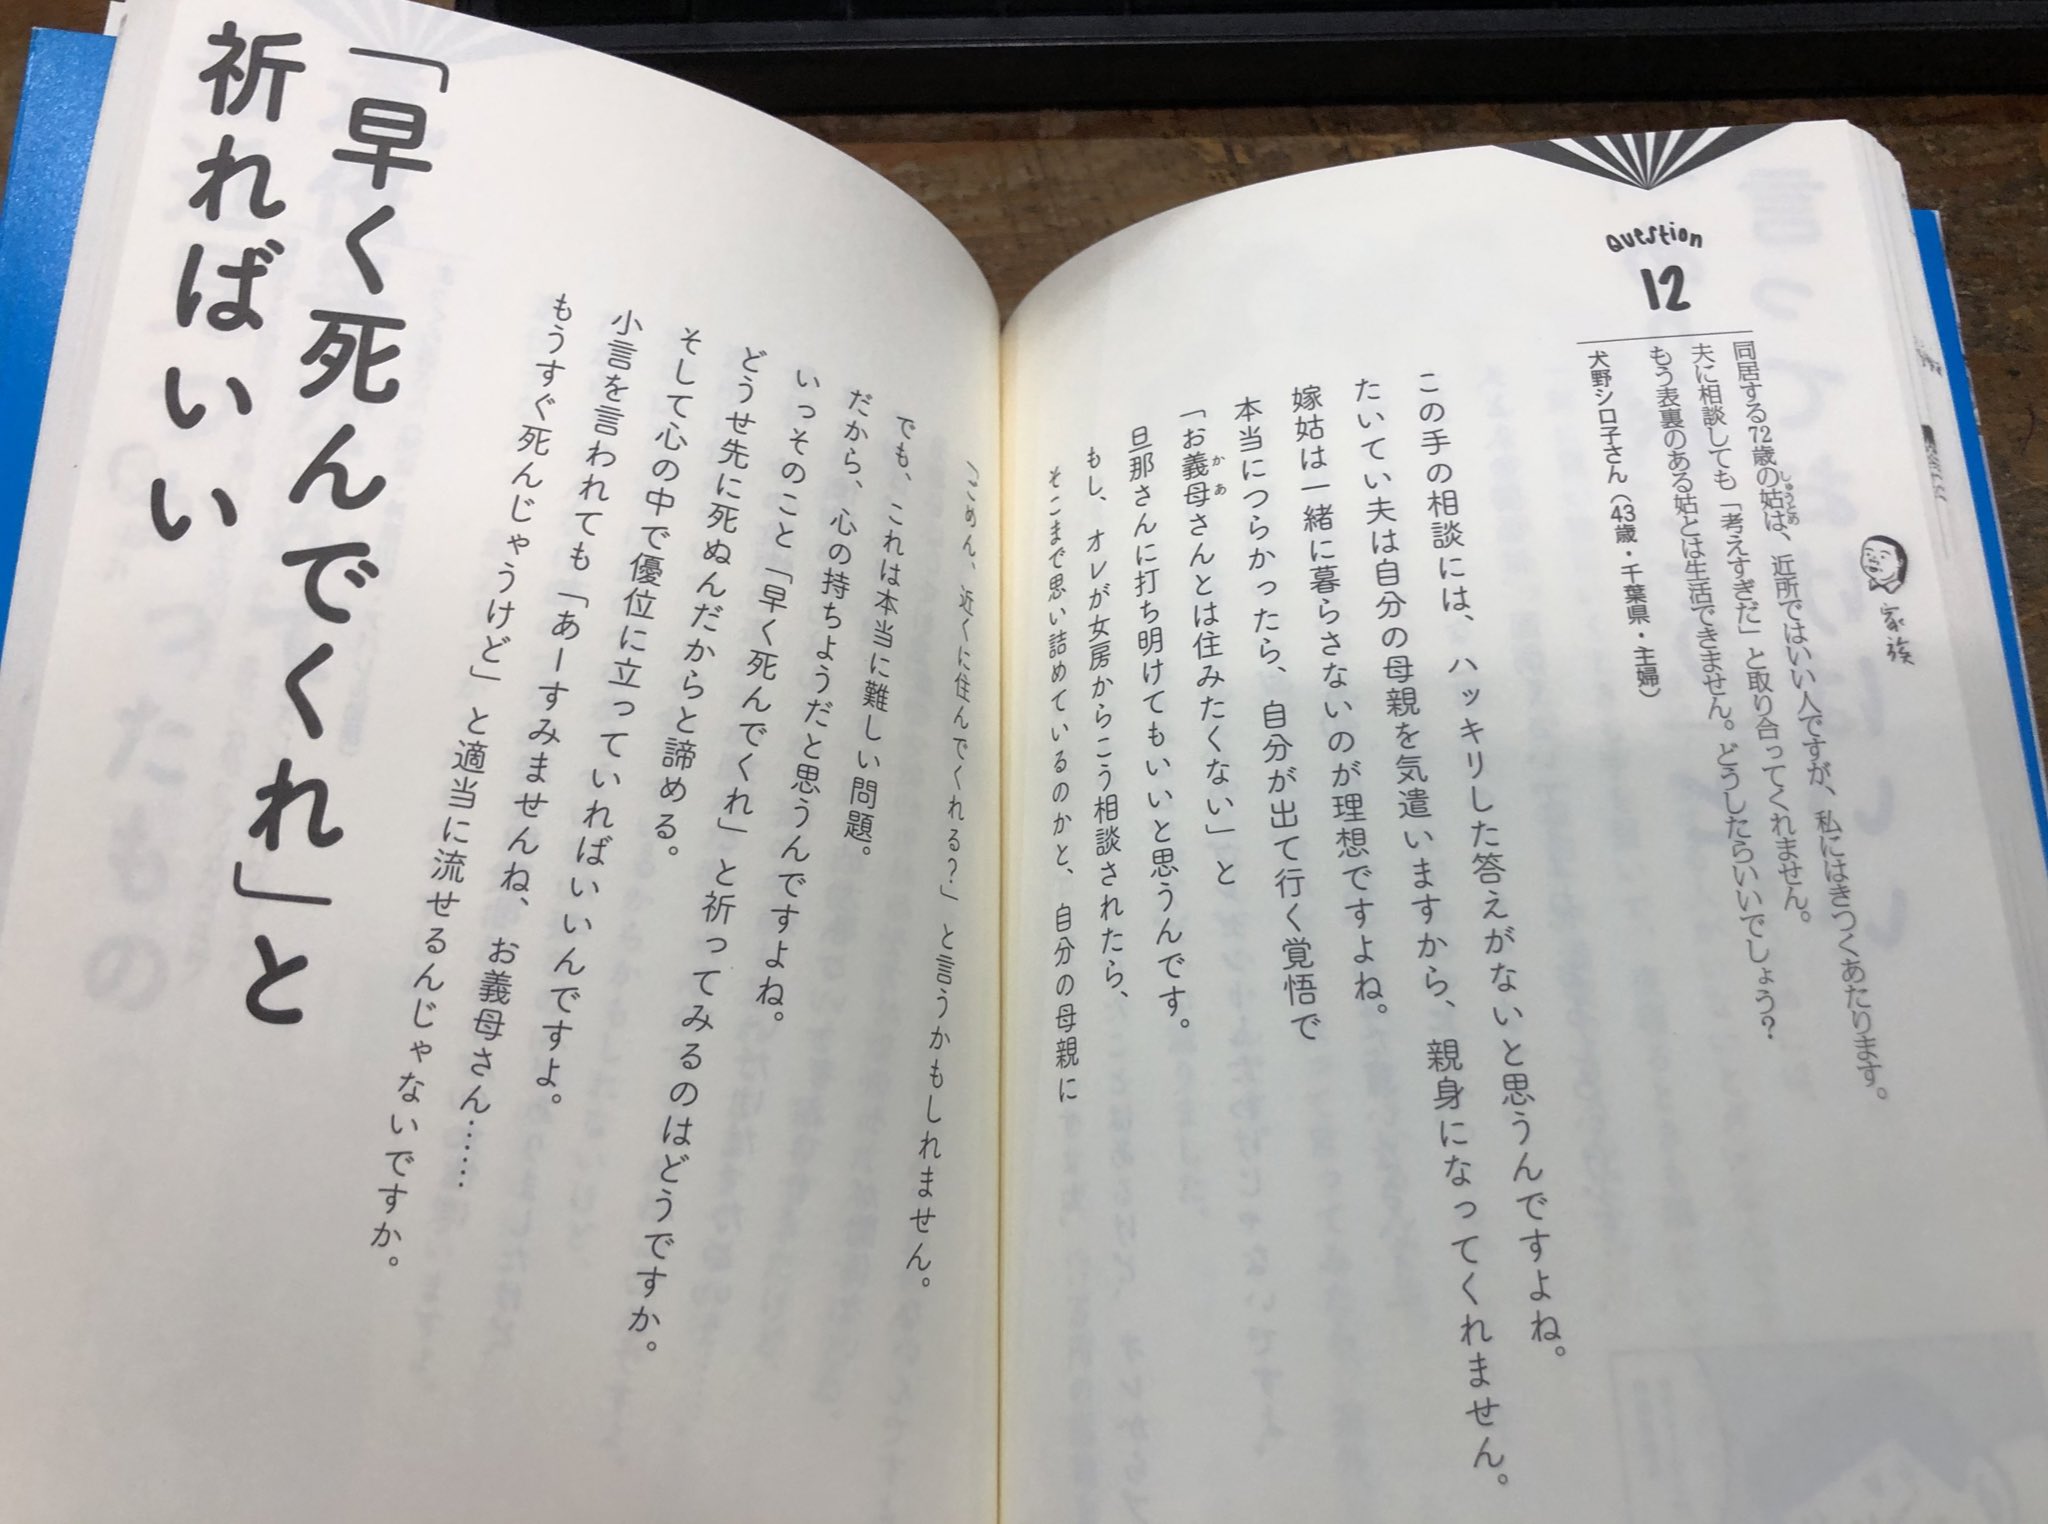 家族
Question
12
同居する72歳の姑は、近所ではいい人ですが、私にはきつくあたります。
しゅうとめ
夫に相談しても「考えすぎだ」と取り合ってくれません。
もう表裏のある姑とは生活できません。どうしたらいいでしょう？
犬野シロ子さん（43歳・千葉県・主婦）
この手の相談には、ハッキリした答えがないと思うんですよね。
たいてい夫は自分の母親を気遣いますから、親身になってくれません。
嫁姑は一緒に暮らさないのが理想ですよね。
本当につらかったら、自分が出て行く覚悟で
「お義母さんとは住みたくない」と
かあ
旦那さんに打ち明けてもいいと思うんです。
もし、オレが女房からこう相談されたら、
そこまで思い詰めているのかと、自分の母親に
「ごめん、近くに住んでくれる？」と言うかもしれません。
でも、これは本当に難しい問題。
だから、心の持ちようだと思うんですよね。
いっそのこと「早く死んでくれ」と祈ってみるのはどうですか。
どうせ先に死ぬんだからと諦める。
そして心の中で優位に立っていればいいんですよ。
小言を言われても「あーすみませんね、お義母さん……
もうすぐ死んじゃうけど」と適当に流せるんじゃないですか。
「早く死んでくれ」と
祈ればいい